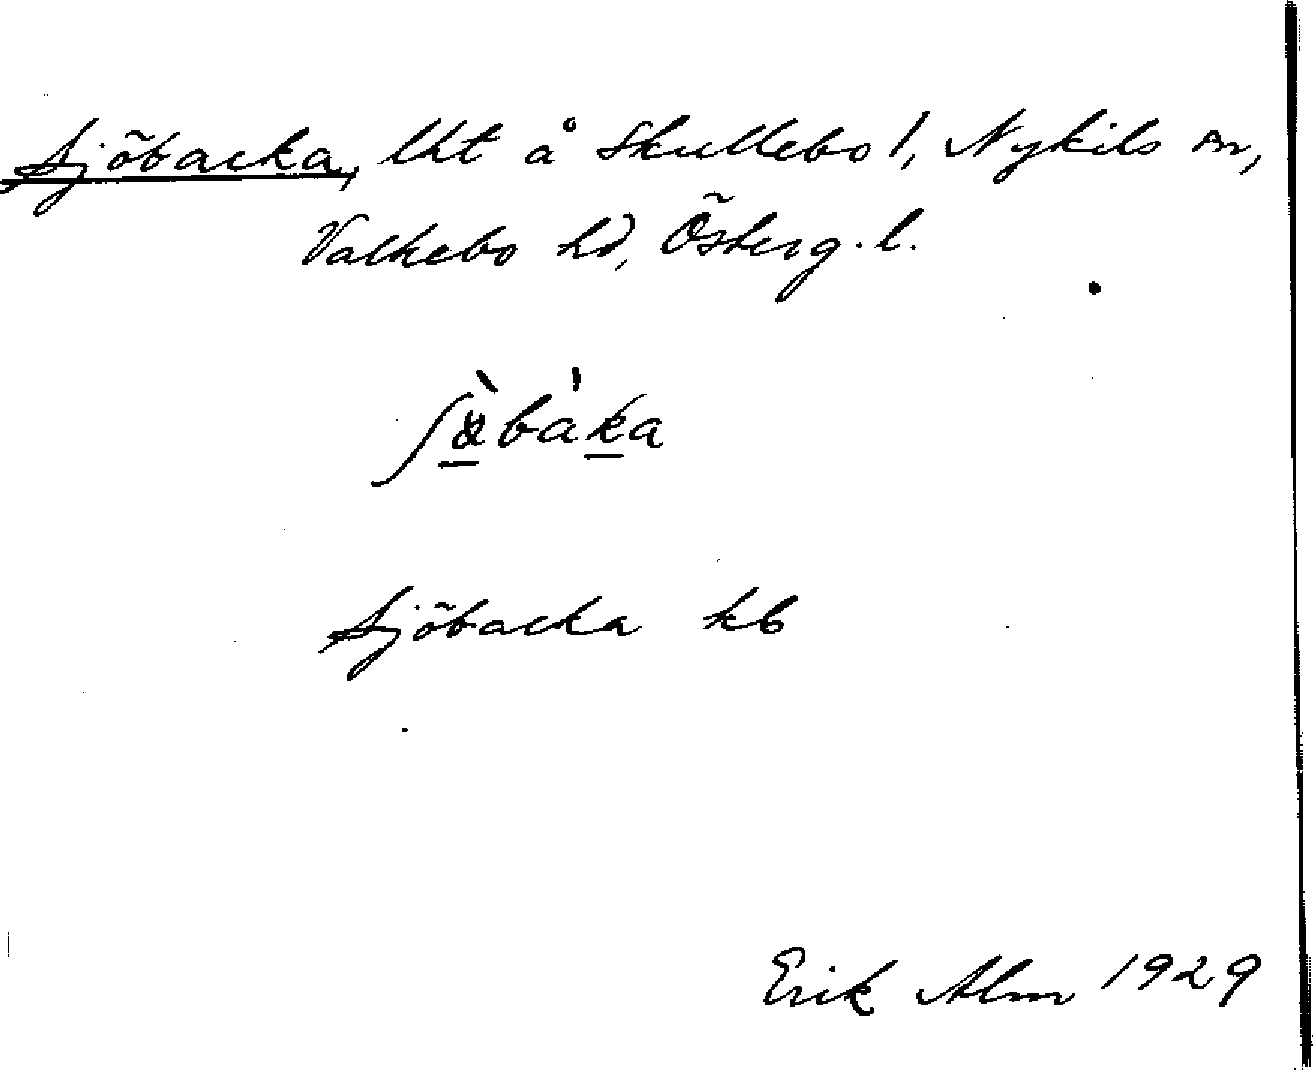 Sjöbacka, lht å Skullebo 1, Nykils sn,
Valkebo hd, Österg. l.
Sjöbacka kb
Erik Alm 1929